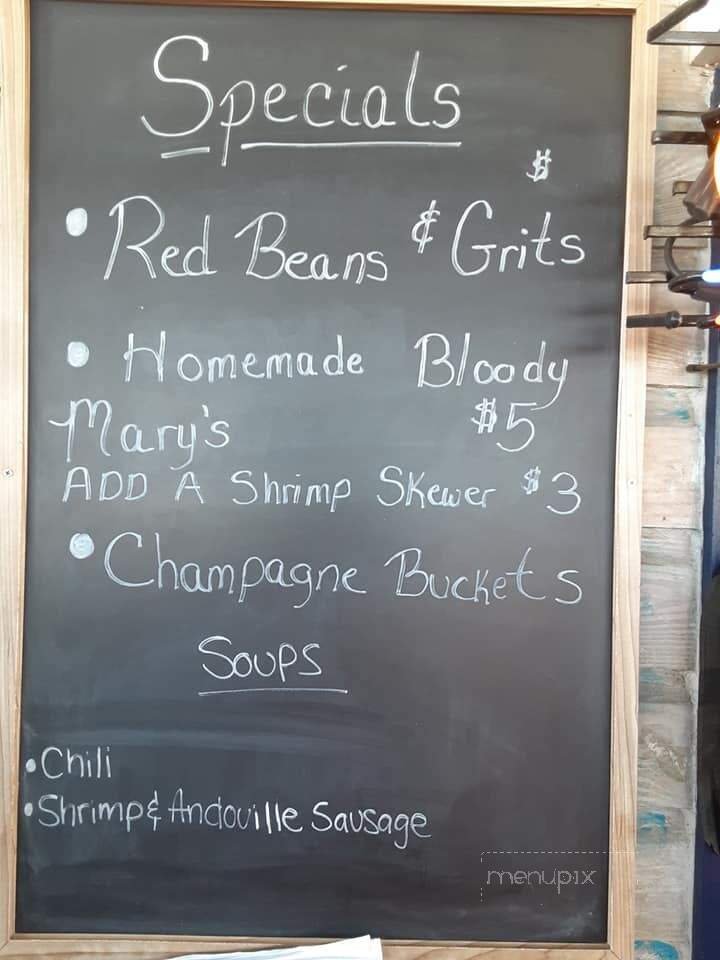 Specials
$
• Red Beans & Grits
• Homemade Bloody
Mary's $5
ADD A Shrimp Skewer $3
• Champagne Buckets
Soups
• Chili
• Shrimp & Andouille Sausage
menupix